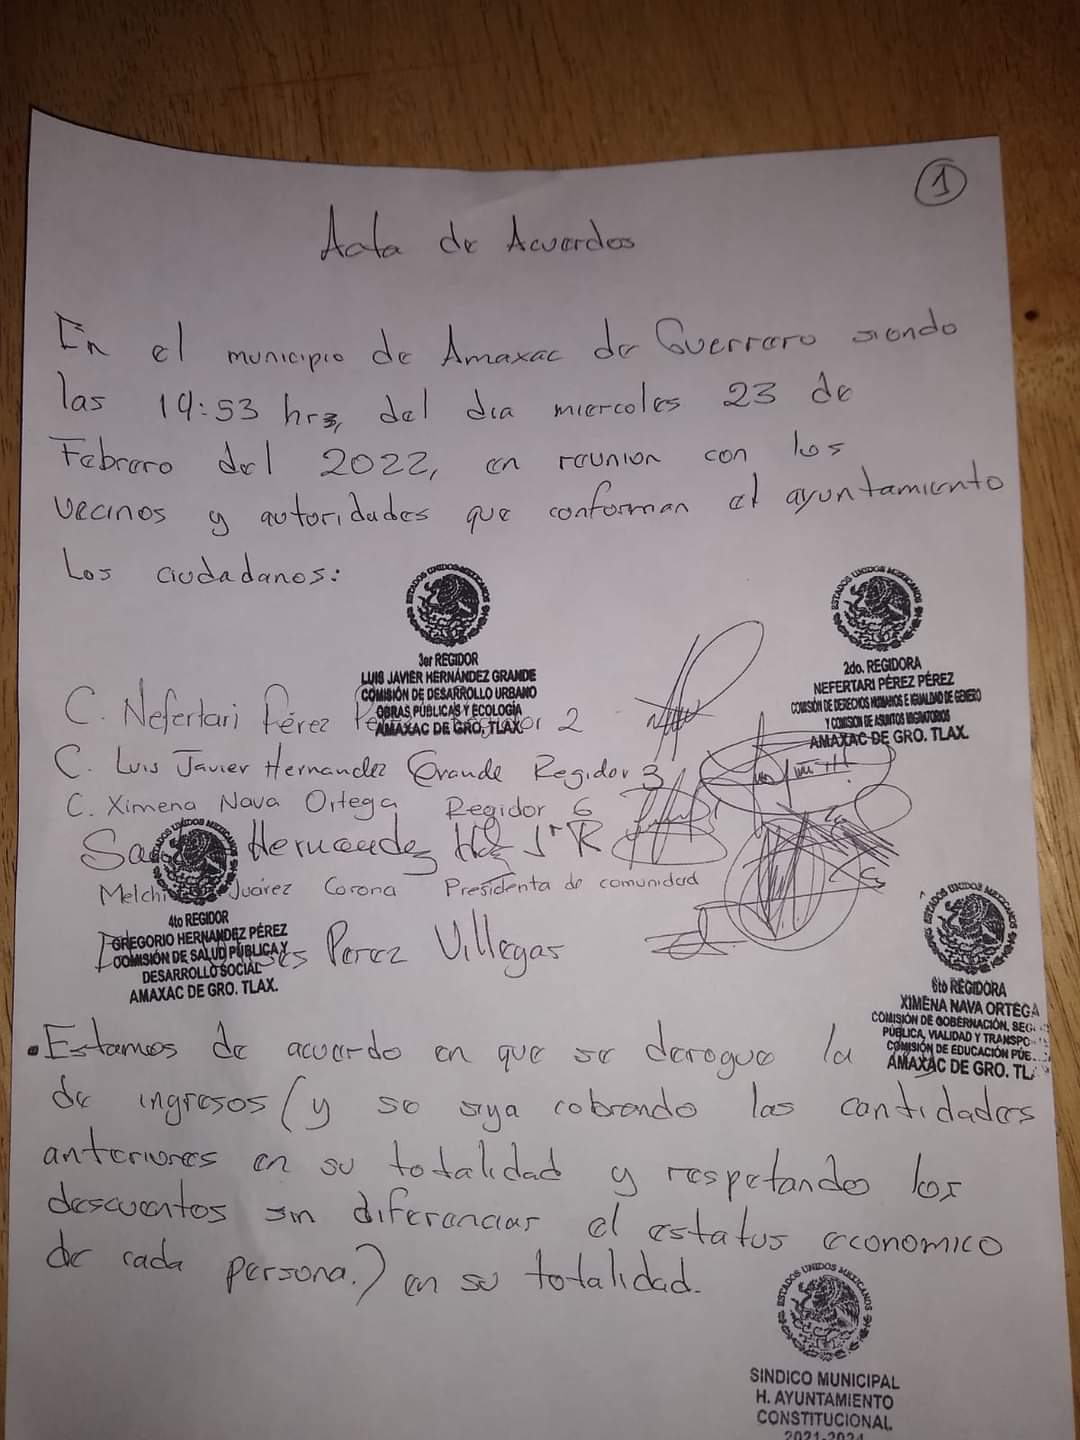 1
Acta de Acuerdos
En el municipio de Amaxac de Guerrero siendo
las 19:53 hrs, del dia miercoles 23 de
Febrero del 2022, en reunion con los
vecinos y autoridades que conforman el ayuntamiento
Los ciudadanos:
ESTADOS UNIDOS MEXICANOS
3er REGIDOR
LUIS JAVIER HERNÁNDEZ GRANDE
COMISIÓN DE DESARROLLO URBANO
OBRAS PÚBLICAS Y ECOLOGÍA
AMAXAC DE GRO. TLAX.
ESTADOS UNIDOS MEXICANOS
2do. REGIDORA
NEFERTARI PÉREZ PÉREZ
COMISIÓN DE DERECHOS HUMANOS E IGUALDAD DE GENERO
Y COMISION DE ASUNTOS MIGRATORIOS
AMAXAC DE GRO. TLAX.
C. Nefertari Pérez 2
C. Luis Javier Hernandez Grande Regidor 3
C. Ximena Nava Ortega Regidor 6
Hernandez
Juárez Corona Presidenta de comunidad
Perez Villegas
ESTADOS UNIDOS MEXICANOS
4to REGIDOR
GREGORIO HERNANDEZ PÉREZ
COMISIÓN DE SALUD PÚBLICA Y
DESARROLLO SOCIAL
AMAXAC DE GRO. TLAX.
ESTADOS UNIDOS MEXICANOS
6to REGIDORA
XIMENA NAVA ORTEGA
COMISIÓN DE GOBERNACIÓN, SEG
PÚBLICA, VIALIDAD Y TRANSPO
COMISIÓN DE EDUCACIÓN PÚB
AMAXAC DE GRO. TL
• Estamos de acuerdo en que se derogue la
de ingresos (y se siya cobrando las cantidades
anteriores en su totalidad y respetando los
descuentos sin diferenciar el estatus economico
de cada persona.) en su totalidad.
ESTADOS UNIDOS MEXICANOS
SINDICO MUNICIPAL
H. AYUNTAMIENTO
CONSTITUCIONAL
2021-2024